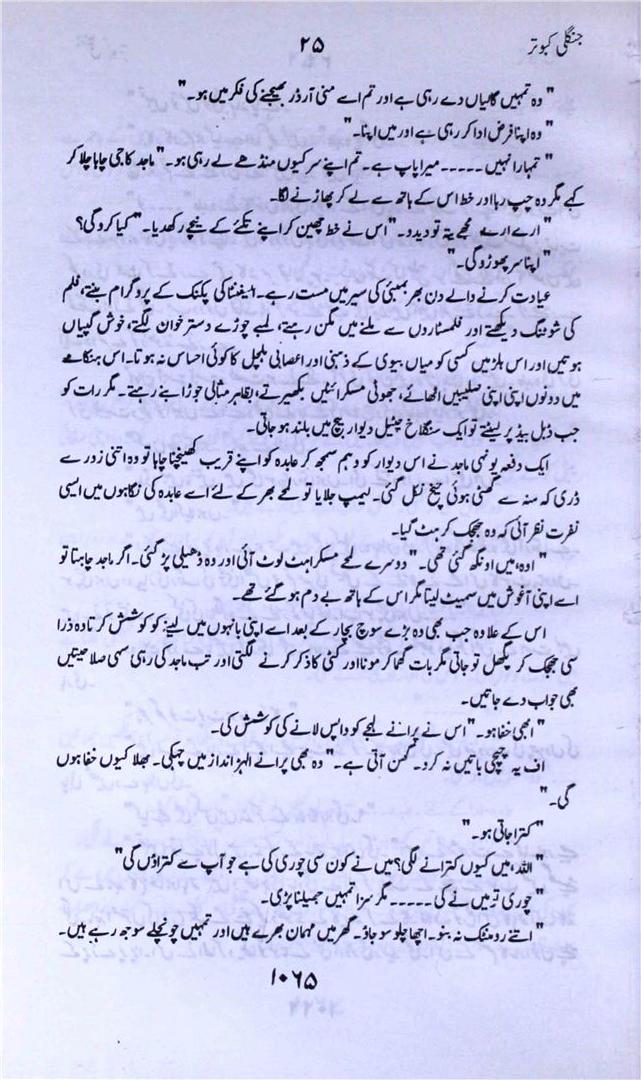 جنگلی کبوتر
۲۵
" وہ تمہیں گالیاں دے رہی ہے اور تم اے منی آرڈر بھیجنے کی فکر میں ہو۔ "
" وہ اپنا فرض ادا کر رہی ہے اور میں اپنا۔ "
" تمہارا نہیں ۔۔۔۔۔ میرا پاپ ہے۔ تم اپنے سر کیوں منڈھے لے رہی ہو۔ " ماجد کا جی چاہا چلا کر
کہے مگر وہ چپ رہا اور خط اس کے ہاتھ سے لے کر پھاڑنے لگا۔
" ارے ارے مجھے پتہ تو دیدو۔ " اس نے خط چھین کر اپنے تکئے کے نیچے رکھ دیا۔ " کیا کرو گی؟
" اپنا سر پھوڑو گی۔ "
عیادت کرنے والے دن بھر بمبئی کی سیر میں مست رہے۔ ایلیفنٹا کی پکنک کے پروگرام بنتے، فلم
کی شوٹنگ دیکھتے اور فلمستاروں سے ملنے میں مگن رہتے، لمبے چوڑے دسترخوان لگتے، خوش گپیاں
ہوتیں اور اس ہلڑ میں کسی کو میاں بیوی کے ذہنی اور اعصابی ہلچل کا کوئی احساس نہ ہوتا۔ اس ہنگامے
میں دونوں اپنی اپنی صلیبیں اٹھائے، جھوٹی مسکرائٹیں بکھیرتے، بظاہر مثالی جوڑا بنے رہتے۔ مگر رات کو
جب ڈبل بیڈ پر لیٹتے تو ایک سنگلاخ چٹیل دیوار بیچ میں بلند ہو جاتی۔
ایک دفعہ یونہی ماجد نے اس دیوار کو وہم سمجھ کر عابدہ کو اپنے قریب کھینچنا چاہا تو وہ اتنی زور سے
ڈری کہ منہ سے گھٹی ہوئی چیخ نکل گئی۔ لیمپ جلایا تو لمحے بھر کے لئے اسے عابدہ کی نگاہوں میں ایسی
نفرت نظر آئی کہ وہ جھجک کر ہٹ گیا۔
" اوہ، میں اونگھ گئی تھی۔ " دوسرے لمحے مسکراہٹ لوٹ آئی اور وہ ڈھیلی پڑ گئی۔ اگر ماجد چاہتا تو
اسے اپنی آغوش میں سمیٹ لیتا مگر اس کے ہاتھ بے دم ہو گئے تھے۔
اس کے علاوہ جب بھی وہ بڑے سوچ بچار کے بعد اسے اپنی بانہوں میں لینے کو کوشش کرتا وہ ذرا
سی جھجک کر پگھل تو جاتی مگر بات گھما کر مونا اور کا ذکر کرنے لگتی اور تب ماجد کی رہی سہی صلاحیتیں
بھی جواب دے جاتیں۔
" ابھی خفا ہو۔ " اس نے پرانے لہجے کو واپس لانے کی کوشش کی۔
اف یہ چھچی باتیں نہ کرو۔ گھن آتی ہے۔ " وہ بھی پرانے الھڑ انداز میں چہکی۔ بھلا کیوں خفا ہوں
گی۔ "
" کتراجاتی ہو۔ "
" اللہ، میں کیوں کترانے لگی؟ میں نے کون سی چوری کی ہے جو آپ سے کتراؤں گی "
" چوری تو میں نے کی ۔۔۔۔۔ مگر سزا تمہیں جھیلنا پڑی۔
" اتنے رومنٹک نہ بنو۔ اچھا چلو سو جاؤ۔ گھر میں مہمان بھرے ہیں اور تمہیں چونچلے سوجھ رہے ہیں۔
۱۰۶۵